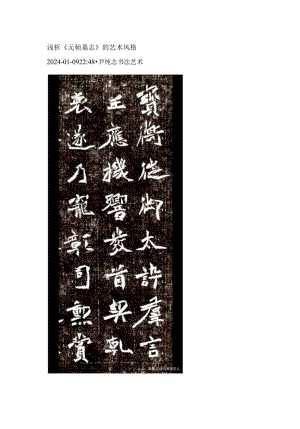 浅析《元桢墓志》的艺术风格
2024-01-0922:48•尹纯志书法艺术
寶衡從御太訴羣言
王應機響發首契乳
衷遂乃寵彰司勳賞